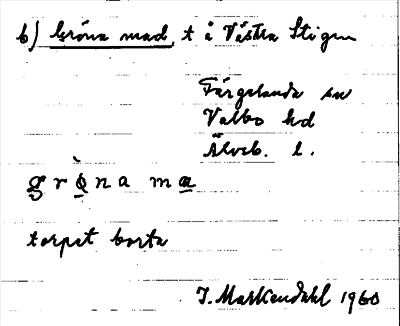 b) Gröna mad, t å Västra Stigen
Färgelanda sn
Valbo hd
Älvsb. l.
grò̱na ma̱
torpet borta
J. Markendahl 1960